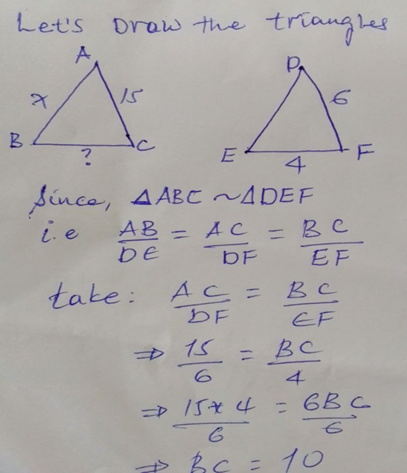 Let's Draw the triangles
A D
x 15 6
B ? C E 4 F
Since, △ABC ~ △DEF
i.e AB/DE = AC/DF = BC/EF
take: AC/DF = BC/EF
⇒ 15/6 = BC/4
⇒ 15×4/6 = 6BC/6
⇒ BC = 10